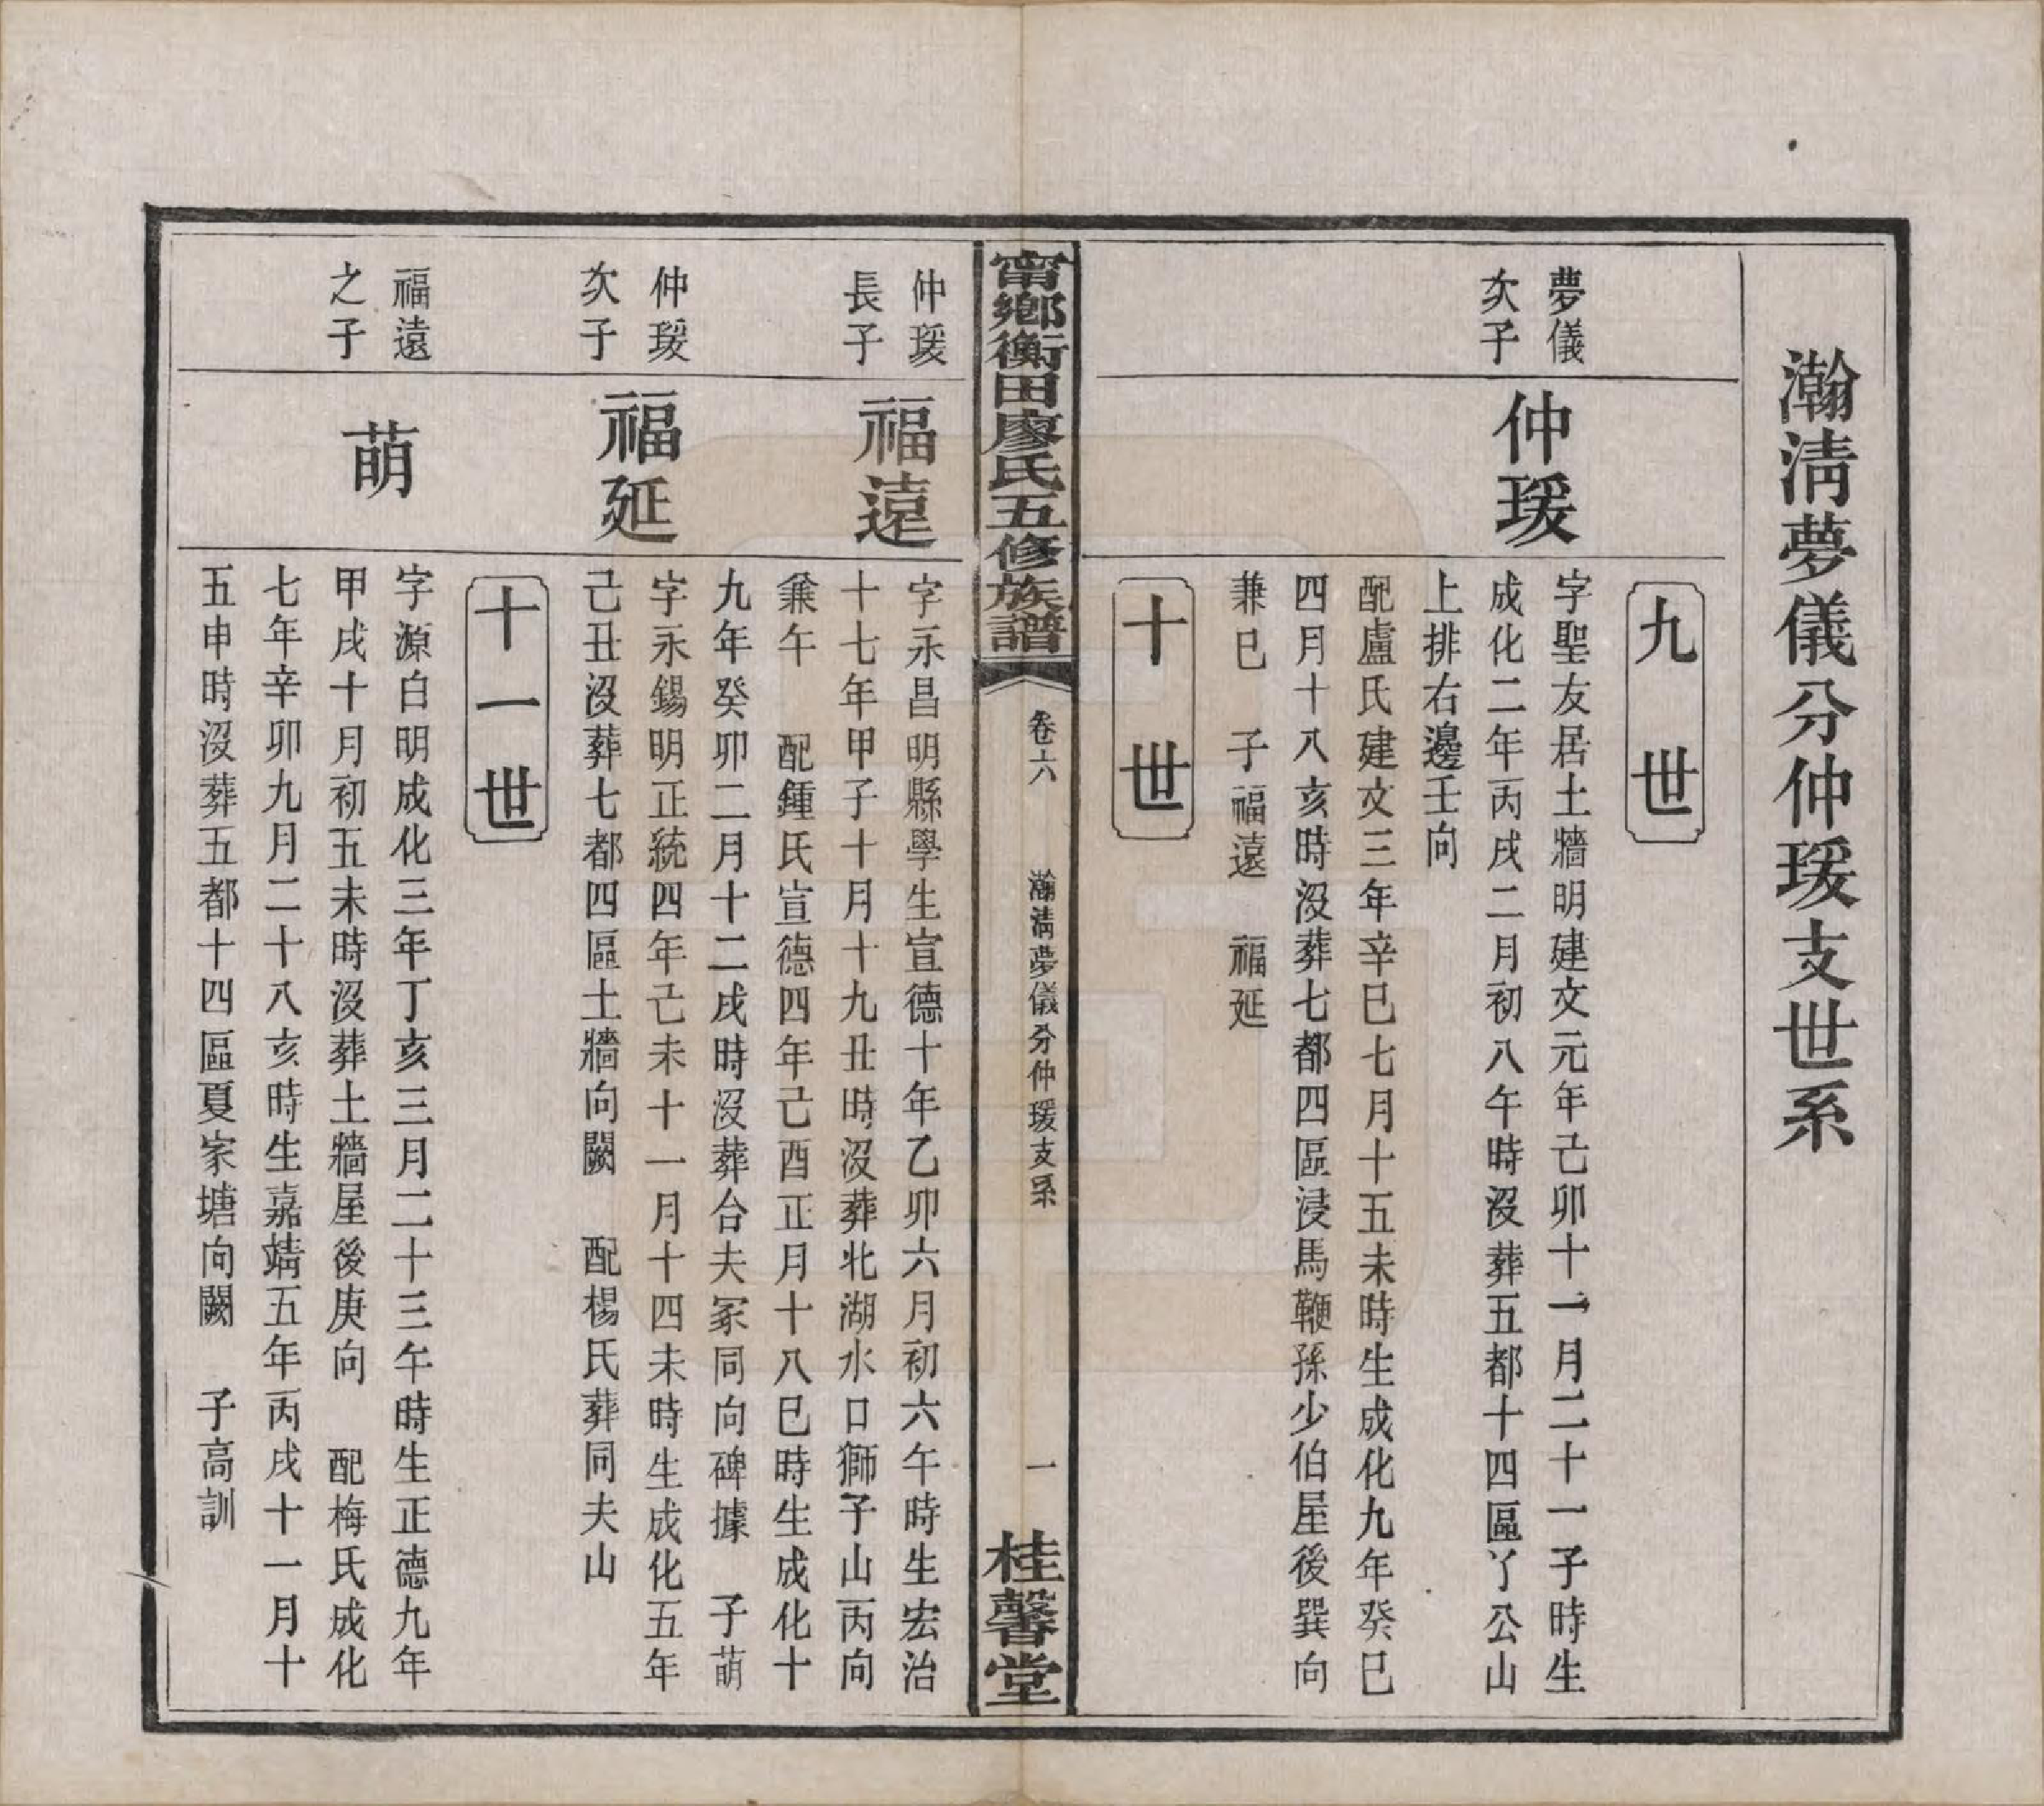 瀚淸夢儀分仲瑗支世系
九世
夢儀
次子
仲瑗
字聖友居土牆明建文元年己卯十一月二十一子時生
成化二年丙戌二月初八午時沒葬五都十四區丫公山
上排右邊壬向
配盧氏建文三年辛巳七月十五未時生成化九年癸巳
四月十八亥時沒葬七都四區浸馬鞭孫少伯屋後巽向
兼巳　子福遠　福延
十世
甯鄉衡田廖氏五修族譜
卷六
瀚淸夢儀分仲瑗支系
一
桂馨堂
仲瑗
長子
福遠
字永昌明縣學生宣德十年乙卯六月初六午時生宏治
十七年甲子十月十九丑時沒葬北湖水口獅子山丙向
兼午　配鍾氏宣德四年己酉正月十八巳時生成化十
九年癸卯二月十二戌時沒葬合夫冢同向碑據　子萌
仲瑗
次子
福延
字永錫明正統四年己未十一月十四未時生成化五年
己丑沒葬七都四區土牆向闕　配楊氏葬同夫山
十一世
福遠
之子
萌
字源白明成化三年丁亥三月二十三午時生正德九年
甲戌十月初五未時沒葬土牆屋後庚向　配梅氏成化
七年辛卯九月二十八亥時生嘉靖五年丙戌十一月十
五申時沒葬五都十四區夏家塘向闕　子高訓